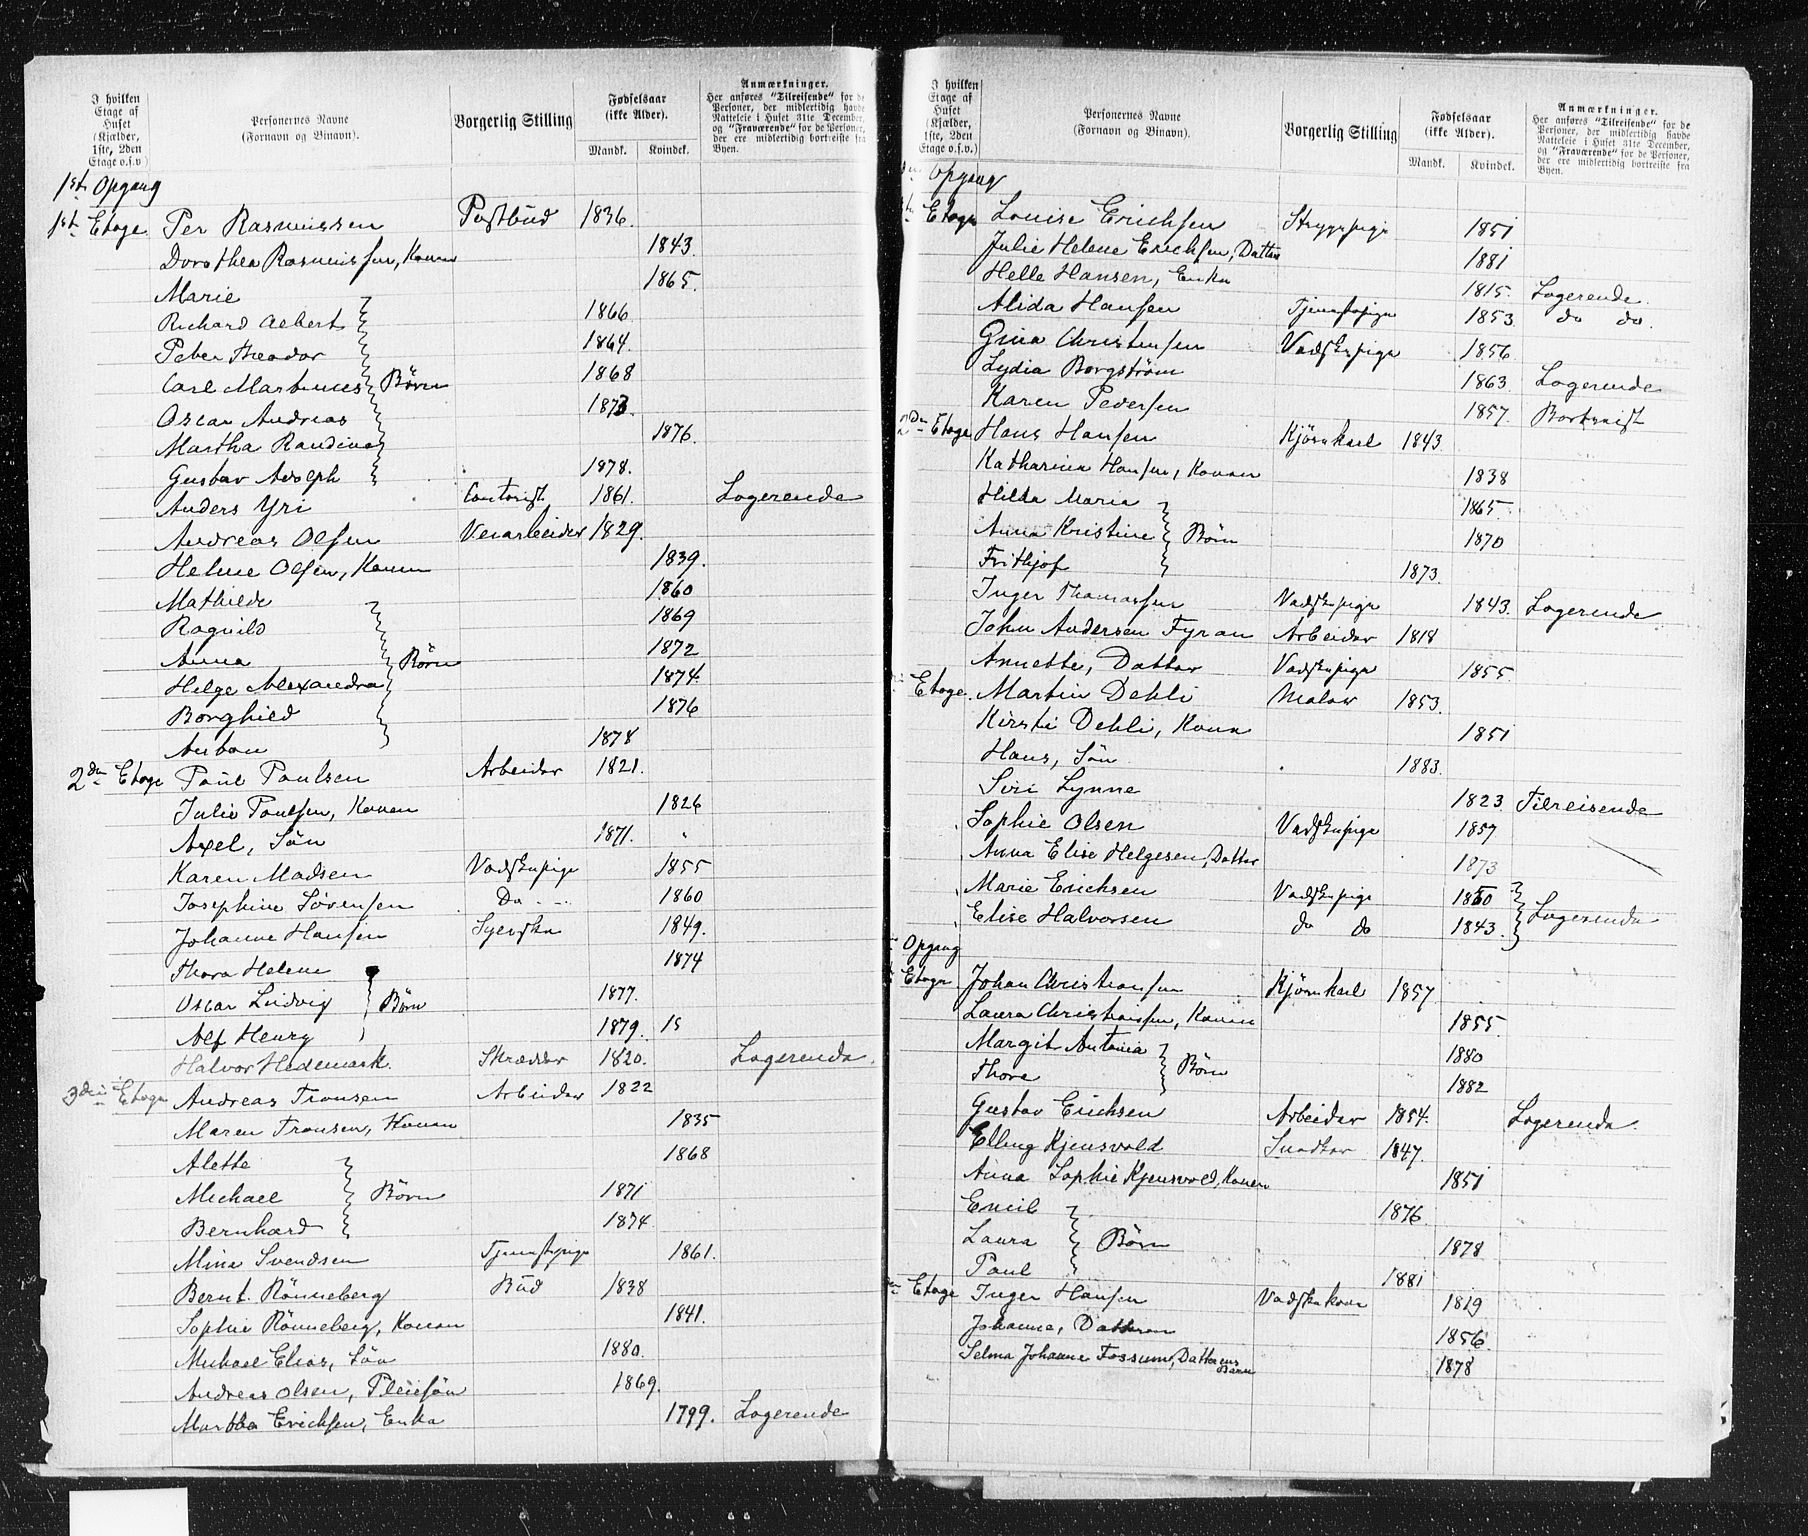 I hvilken Etage af Huset (Kjælder, 1ste, 2den Etage o.s.v) | Personernes Navne (Fornavn og Binavn). | Borgerlig Stilling | Fødselsaar (ikke Alder). Mandk. Kvindek. | Anmærkninger. Her anføres "Tilreisende" for de Personer, der midlertidig havde Natteleie i Huset 31te December, og "Fraværende" for de Personer, der ere midlertidig bortreiste fra Byen.
1ste Opgang
1ste Etage Per Rasmussen Postbud 1836.
Dorothea Rasmussen, Konen 1843.
Marie 1865.
Richard Albert 1866.
Peter Theodor 1864.
Carl Martinius Börn 1868
Oscar Andreas 1873.
Martha Randina 1876.
Gustav Adolph 1878.
Anders Yri Contorist 1861. Logerende
Andreas Olsen 1829.
Helene Olsen, Konen 1839.
Mathilde 1860
Ragnild 1869
Anna Börn 1872
Helge Alexandra 1874.
Borghild 1876
Anton 1878
2den Etage Paul Paulsen Arbeider 1821.
Julie Paulsen, Konen 1826
Axel, Sön 1871.
Karen Madsen Vadskepige 1855
Josephine Sörensen Do 1860
Johanne Hansen Syerske 1849.
Thora Helene 1874
Oscar Ludvig Börn 1877.
Alf Henry 1879. 15
Halvor Hedemark. Skrædder 1820. Logerende.
3die Etage Andreas Tronsen Arbeider 1822
Maren Tronsen, Konen 1835
Alette 1868
Michael Börn 1871
Bernhard 1874
Mina Svendsen Tjenestepige 1861.
Bernt Rönneberg Bud 1838
Sophie Rönneberg, Konen 1841.
Michael Elias, Sön 1880.
Andreas Olsen, Pleiesön 1869.
Martha Erichsen, Enke 1799. Logerende
I hvilken Etage af Huset (Kjælder, 1ste, 2den Etage o.s.v.) | Personernes Navne (Fornavn og Binavn). | Borgerlig Stilling | Fødselsaar (ikke Alder). Mandk. Kvindek. | Anmærkninger. Her anføres "Tilreisende" for de Personer, der midlertidig havde Natteleie i Huset 31te December, og "Fraværende" for de Personer, der ere midlertidig bortreiste fra Byen.
Opgang
Etage Louise Erichsen Strygepige 1851
Julie Helene Erichsen, Datter 1881
Helle Hansen, Enke 1815. Logerende.
Alida Hansen Tjenestepige 1853 do do.
Gina Christensen Vadskepige 1856
Lydia Borgström 1863. Logerende
Karen Pedersen 1857. Bortreist
2den Etage Hans Hansen Kjörekarl 1843
Katharina Hansen, Konen 1838
Hilda Maria 1865
Anna Kristine Börn 1870
Frithjof 1873.
Inger Thomassen Vadskepige 1843. Logerende
John Andersen Fyran Arbeider 1818
Annette, Datter Vadskepige 1855.
Etage. Martin Dehli Maler 1853.
Kirsti Dehli, Kone 1851
Hans, Sön 1883.
Siri Lynne 1823 Tilreisende
Sophie Olsen Vadskepige 1857
Anna Elise Helgesen, Datter 1873
Marie Erichsen Vadskepige 1850
Elise Halvorsen do do 1843. Logerende
Opgang
Etage Johan Christiansen Kjörekarl 1857
Laura Christiansen, Konen 1855
Margit Antonia 1880
Thora Börn 1882
Gustav Erichsen Arbeider 1854. Logerende.
Elling Kjensvold Snedker 1847.
Anna Sophie Kjensvold, Konen 1851
Emil 1876
Laura Börn 1878
Paul 1881
Etage Inger Hansen Vadskekone 1819
Johanne, Datteren 1856
Selma Johanne Fossum, Datterens Barn 1878